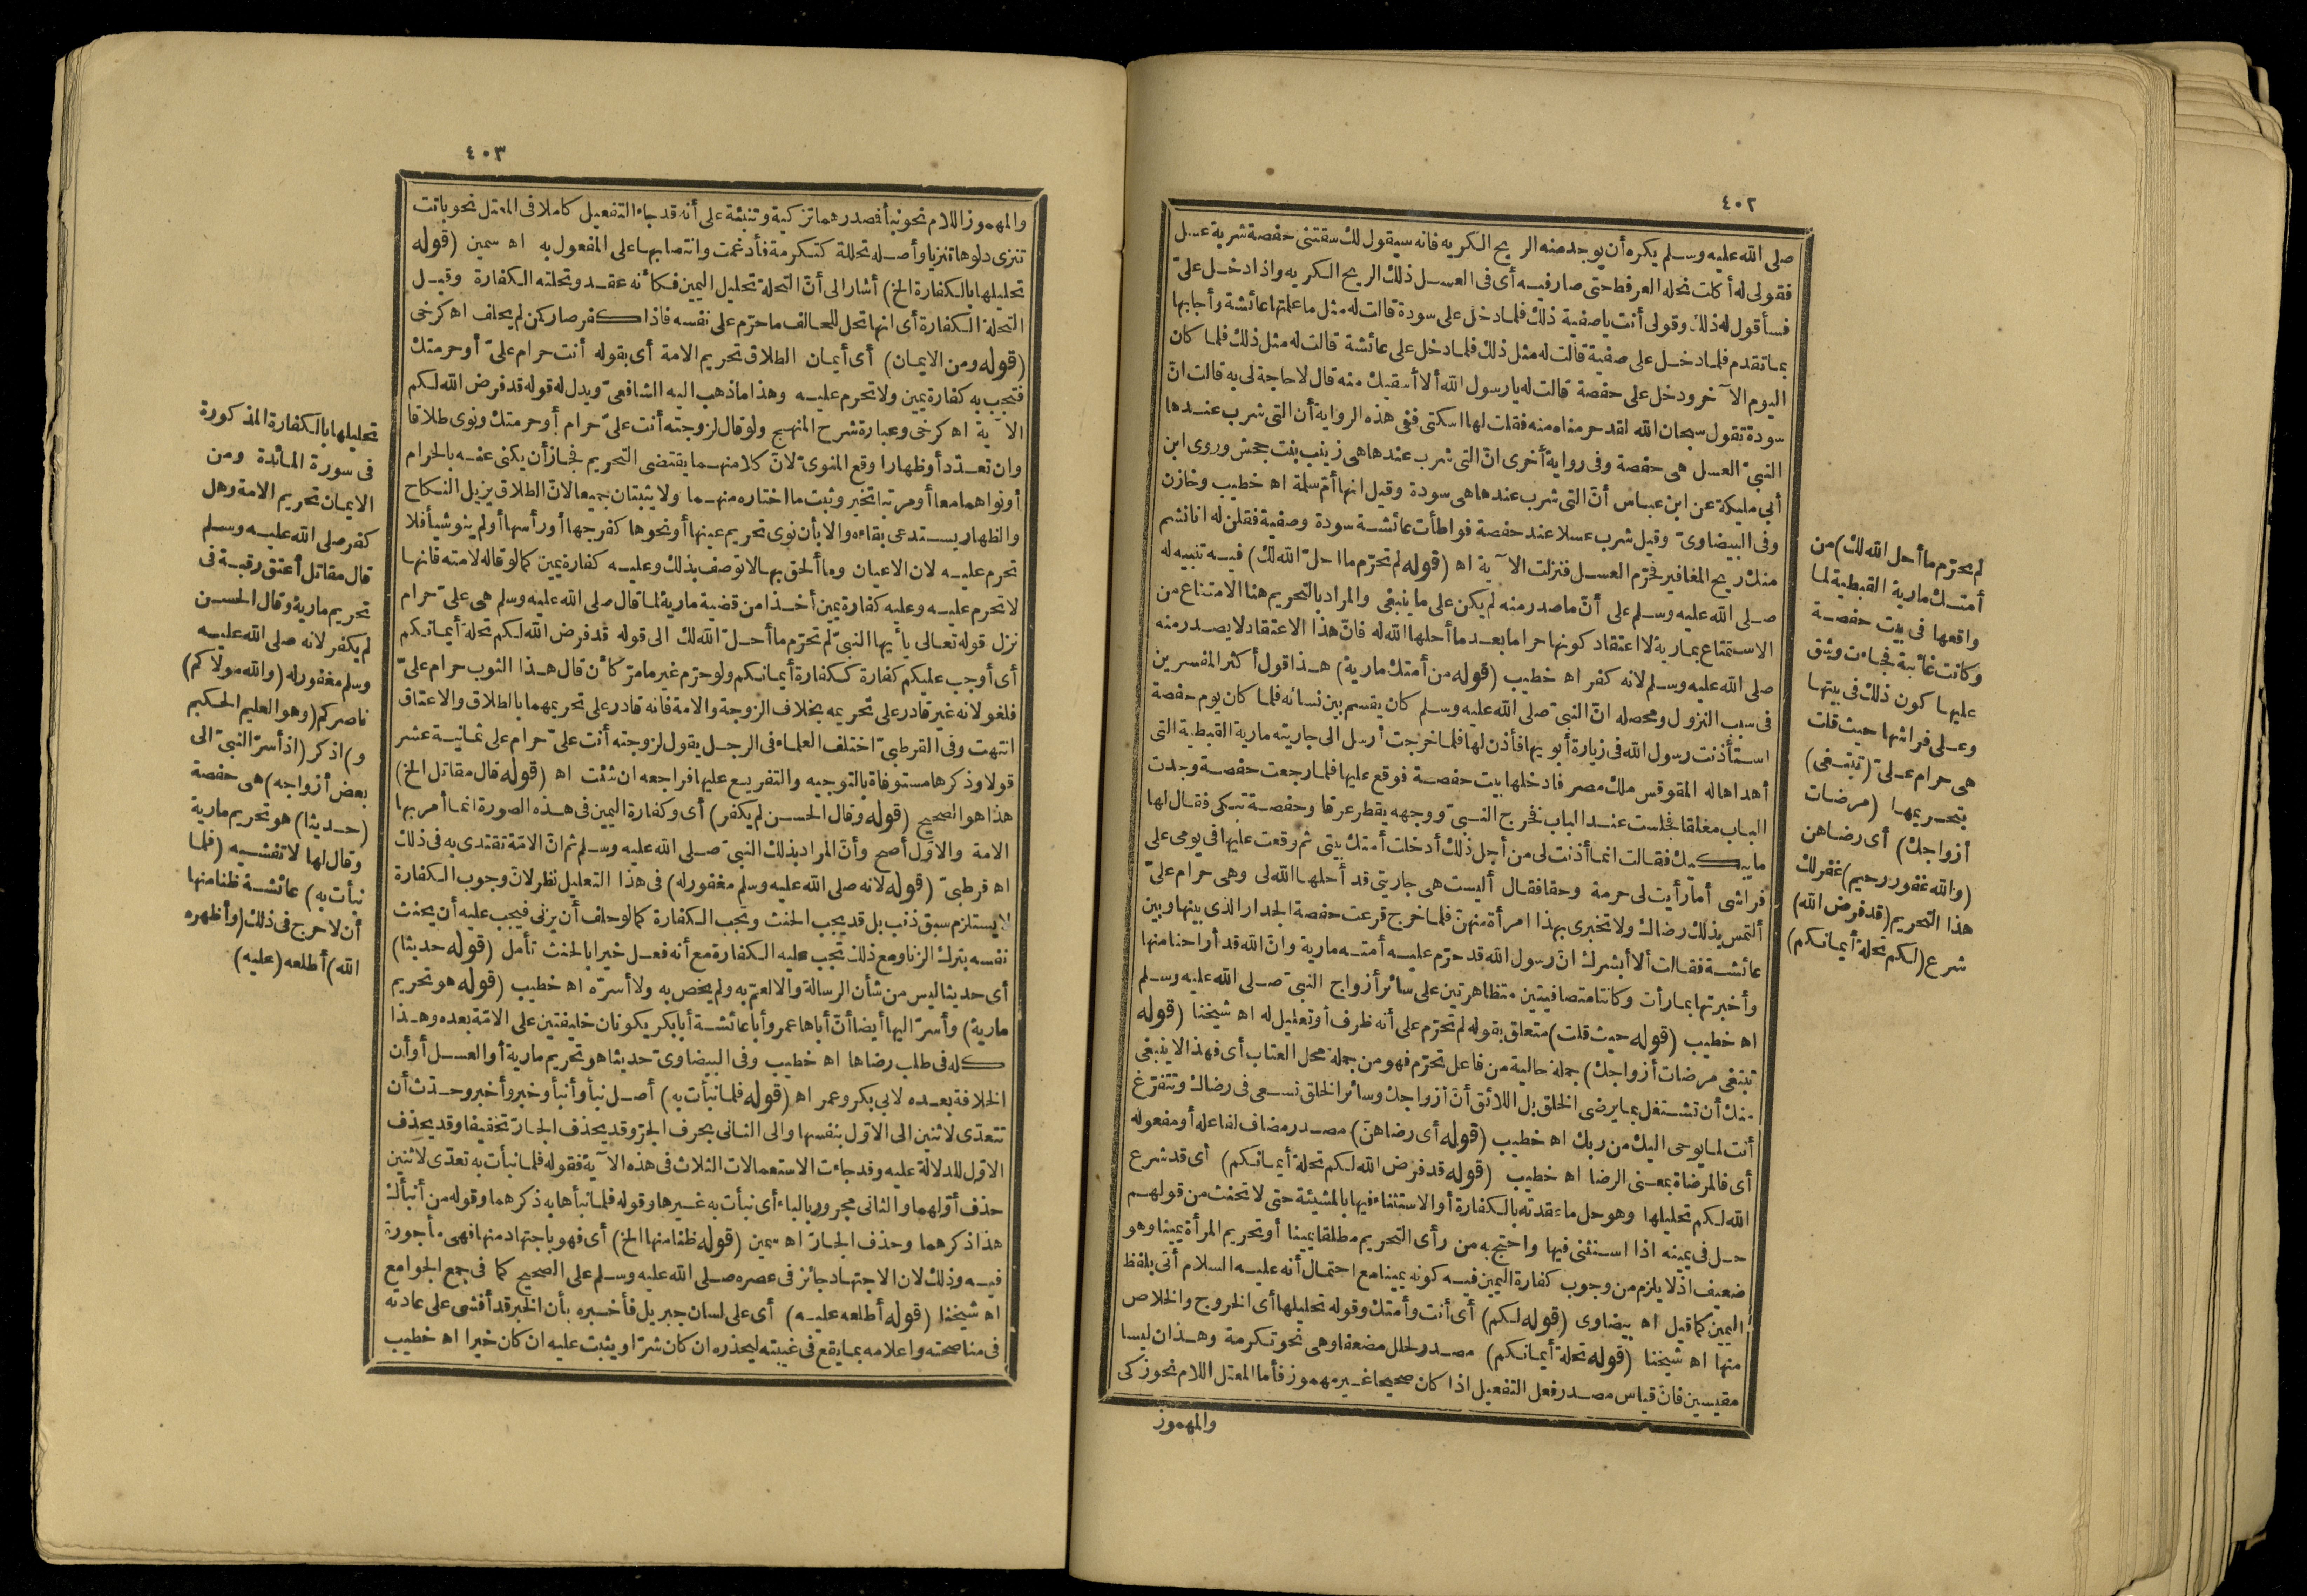 ٤٠٢
صلى الله عليه وسلم يكره أن يوجد منه الريح الكريه فانه سيقول لك سقتنى حفصة شربة عسل
فقولى له أكلت نحله العرفط حتى صار فيه أى فى العسل ذلك الريح الكريه واذا دخل علىّ
فسأقول له ذلك وقولى أنت ياصفية ذلك فلما دخل على سودة قالت له مثل ما علمتها عائشة وأجابها
بما تقدم فلما دخل على صفية قالت له مثل ذلك فلما دخل على عائشة قالت له مثل ذلك فلما كان
اليوم الآخر ودخل على حفصة قالت له يارسول الله ألا أسقيك منه قال لا حاجة لى به قالت ان
سودة تقول سبحان الله لقد حرمناه منه فقلت لها اسكتى ففى هذه الرواية أن التى شرب عندها
النبىّ العسل هى حفصة وفى رواية أخرى انّ التى شرب عندها هى زينب بنت جحش وروى ابن
أبى مليكة عن ابن عباس أنّ التى شرب عندها هى سودة وقيل انها أمّ سلمة اه خطيب وخازن
وفى البيضاوىّ وقيل شرب عسلا عند حفصة فواطأت عائشة سودة وصفية فقلن له انا نشم
منك ريح المغافير فحرّم العسل فنزلت الآية اه (قوله لم تحرّم ما احلّ الله لك) فيه تنبيه له
صلى الله عليه وسلم على أنّ ما صدر منه لم يكن على ما ينبغى والمراد بالتحريم هنا الامتناع من
الاستمتاع بمارية لا اعتقاد كونها حراما بعد ما أحلها الله له فانّ هذا الاعتقاد لا يصدر منه
صلى الله عليه وسلم لانه كفر اه خطيب (قوله من أمتك مارية) هذا قول أكثر المفسرين
فى سبب النزول ومحصله انّ النبىّ صلى الله عليه وسلم كان يقسم بين نسائه فلما كان يوم حفصة
استأذنت رسول الله فى زيارة أبويها فأذن لها فلما خرجت أرسل الى جاريته مارية القبطية التى
أهداها له المقوقس ملك مصر فادخلها بيت حفصة فوقع عليها فلما رجعت حفصة وجدت
الباب مغلقا فجلست عند الباب فخرج النبىّ ووجهه يقطر عرقا وحفصة تبكى فقال لها
ما يبكيك فقالت انما أذنت لى من أجل ذلك أدخلت أمتك بيتى ثم وقعت عليها فى يومى على
فراشى أما رأيت لى حرمة وحقا فقال أليست هى جاريتى قد أحلها الله لى وهى حرام علىّ
ألتمس بذلك رضاك ولا تخبرى بهذا امرأة منهنّ فلما خرج قرعت حفصة الجدار الذى بينها وبين
عائشة فقالت ألا أبشرك انّ رسول الله قد حرّم عليه أمته مارية وانّ الله قد أراحنا منها
وأخبرتها بما رأت وكانتا متصافيتين متظاهرتين على سائر أزواج النبىّ صلى الله عليه وسلم
اه خطيب (قوله حيث قلت) متعلق بقوله لم تحرّم على أنه ظرف أو تعليل له اه شيخنا (قوله
تبتغى مرضات أزواجك) جملة حالية من فاعل تحرّم فهو من جملة محل العتاب أى فهذا لا ينبغى
منك أن تشتغل بما يرضى الخلق بل اللائق أنّ أزواجك وسائر الخلق تسعى فى رضاك وتتفرّغ
أنت لما يوحى اليك من ربك اه خطيب (قوله أى رضاهنّ) مصدر مضاف لفاعله أو مفعوله
أى فالمرضاة بمعنى الرضا اه خطيب (قوله قد فرض الله لكم تحلة أيمانكم) أى قد شرع
الله لكم تحليلها وهو حل ما عقدته بالكفارة أو الاستثناء فيها بالمشيئة حتى لا تحنث من قولهم
حل فى يمينه اذا استثنى فيها واحتج به من رأى التحريم مطلقا يمينا أو تحريم المرأة يمينا وهو
ضعيف اذ لا يلزم من وجوب كفارة اليمين فيه كونه يمينا مع احتمال أنه عليه السلام أتى بلفظ
اليمين كما قيل اه بيضاوى (قوله لكم) أى أنت وأمتك وقوله تحليلها أى الخروج والخلاص
منها اه شيخنا (قوله تحلة أيمانكم) مصدر لحلل مضعفا وهى نحو تكرمة وهذان ليسا
مقيسين فانّ قياس مصدر فعل التفعيل اذا كان صحيحا غير مهموز فأما المعتل اللام نحو زكى
والمهموز
لم تحرّم ما أحل الله لك) من
أمتك مارية القبطية لما
واقعها فى بيت حفصة
وكانت غائبة فجاءت وشق
عليها كون ذلك فى بيتها
وعلى فراشها حيث قلت
هى حرام علىّ (تبتغى)
بتحريمها (مرضات
أزواجك) أى رضاهن
(والله غفور رحيم) غفر لك
هذا التحريم (قد فرض الله)
شرع (لكم تحلة أيمانكم)
٤٠٣
والمهموز اللام نحو نبأ فصدرهما تزكية وتنبئة على أنه قد جاء التفعيل كاملا فى المعتل نحو باتت
تنزى دلوها تنزيا وأصله تحللة كتكرمة فأدغمت وانتصابها على المفعول به اه سمين (قوله
تحليلها بالكفارة الخ) أشار الى أنّ التحلة تحليل اليمين فكأنه عقد وتحلته الكفارة وقيل
التحلة الكفارة أى انها تحل للحالف ما حرّم على نفسه فاذا كفر صار كمن لم يحلف اه كرخى
(قوله ومن الايمان) أى أيمان الطلاق تحريم الامة أى بقوله أنت حرام علىّ أو حرمتك
فتجب به كفارة يمين ولا تحرم عليه وهذا ما ذهب اليه الشافعىّ ويدل له قوله قد فرض الله لكم
الآية اه كرخى وعبارة شرح المنهج ولو قال لزوجته أنت علىّ حرام أو حرمتك ونوى طلاقا
وان تعدّد أو ظهارا وقع المنوىّ لانّ كلا منهما يقتضى التحريم فجاز أن يكنى عنه بالحرام
أو نواهما معا أو مرتبا تخير وثبت ما اختاره منهما ولا يثبتان جميعا لانّ الطلاق يزيل النكاح
والظهار يستدعى بقاءه والا بأن نوى تحريم عينها أو نحوها كفرجها أو رأسها أو لم ينو شيأ فلا
تحرم عليه لان الاعيان وما ألحق بها لا توصف بذلك وعليه كفارة يمين كما لو قاله لامته فانها
لا تحرم عليه وعليه كفارة يمين أخذا من قضية مارية لما قال صلى الله عليه وسلم هى علىّ حرام
نزل قوله تعالى يا أيها النبىّ لم تحرّم ما أحلّ الله لك الى قوله قد فرض الله لكم تحلة أيمانكم
أى أوجب عليكم كفارة ككفارة أيمانكم ولو حرّم غير ما مرّ كأن قال هذا الثوب حرام علىّ
فلغو لانه غير قادر على تحريمه بخلاف الزوجة والامة فانه قادر على تحريمهما بالطلاق والاعتاق
انتهت وفى القرطبىّ اختلف العلماء فى الرجل يقول لزوجته أنت علىّ حرام على ثمانية عشر
قولا وذكرها مستوفاة بالتوجيه والتفريع عليها فراجعه ان شئت اه (قوله قال مقاتل الخ)
هذا هو الصحيح (قوله وقال الحسن لم يكفر) أى وكفارة اليمين فى هذه الصورة انما أمر بها
الامة والاوّل أصح وأنّ المراد بذلك النبىّ صلى الله عليه وسلم ثم انّ الامّة تقتدى به فى ذلك
اه قرطبىّ (قوله لانه صلى الله عليه وسلم مغفور له) فى هذا التعليل نظر لانّ وجوب الكفارة
لا يستلزم سبق ذنب بل قد يجب الحنث وتجب الكفارة كما لو حلف أن يزنى فيجب عليه أن يحنث
نفسه بترك الزنا ومع ذلك تجب عليه الكفارة مع أنه فعل خيرا بالحنث تأمل (قوله حديثا)
أى حديثا ليس من شأن الرسالة والا لعمّ به ولم يخص به ولا أسرّه اه خطيب (قوله هو تحريم
مارية) وأسرّ اليها أيضا أنّ أباها عمر وأبا عائشة أبا بكر يكونان خليفتين على الامّة بعده وهذا
كله فى طلب رضاها اه خطيب وفى البيضاوىّ حديثا هو تحريم مارية أو العسل أو أن
الخلافة بعده لابى بكر وعمر اه (قوله فلما نبأت به) أصل نبأ وأنبأ وخبر وأخبر وحدّث أن
تتعدّى لاثنين الى الاوّل بنفسها والى الثانى بحرف الجرّ وقد يحذف الجارّ تخفيفا وقد يحذف
الاوّل للدلالة عليه وقد جاءت الاستعمالات الثلاث فى هذه الآية فقوله فلما نبأت به تعدّى لاثنين
حذف أوّلهما والثانى مجرور بالباء أى نبأت به غيرها وقوله فلما نبأها به ذكرهما وقوله من أنبأك
هذا ذكرهما وحذف الجارّ اه سمين (قوله ظنا منها الخ) أى فهو باجتهاد منها فهى مأجورة
فيه وذلك لان الاجتهاد جائز فى عصره صلى الله عليه وسلم على الصحيح كما فى جمع الجوامع
اه شيخنا (قوله أطلعه عليه) أى على لسان جبريل فأخبره بأن الخبر قد أفشى على عادته
فى مناصحته واعلامه بما يقع فى غيبته ليحذره ان كان شرّا ويثيب عليه ان كان خيرا اه خطيب
تحليلها بالكفارة المذكورة
فى سورة المائدة ومن
الايمان تحريم الامة وهل
كفر صلى الله عليه وسلم
قال مقاتل أعتق رقبة فى
تحريم مارية وقال الحسن
لم يكفر لانه صلى الله عليه
وسلم مغفور له (والله مولاكم)
ناصركم (وهو العليم الحكيم
و) اذكر (اذ أسرّ النبىّ الى
بعض أزواجه) هى حفصة
(حديثا) هو تحريم مارية
وقال لها لا تفشيه (فلما
نبأت به) عائشة ظنا منها
أن لا حرج فى ذلك (وأظهره
الله) أطلعه (عليه)